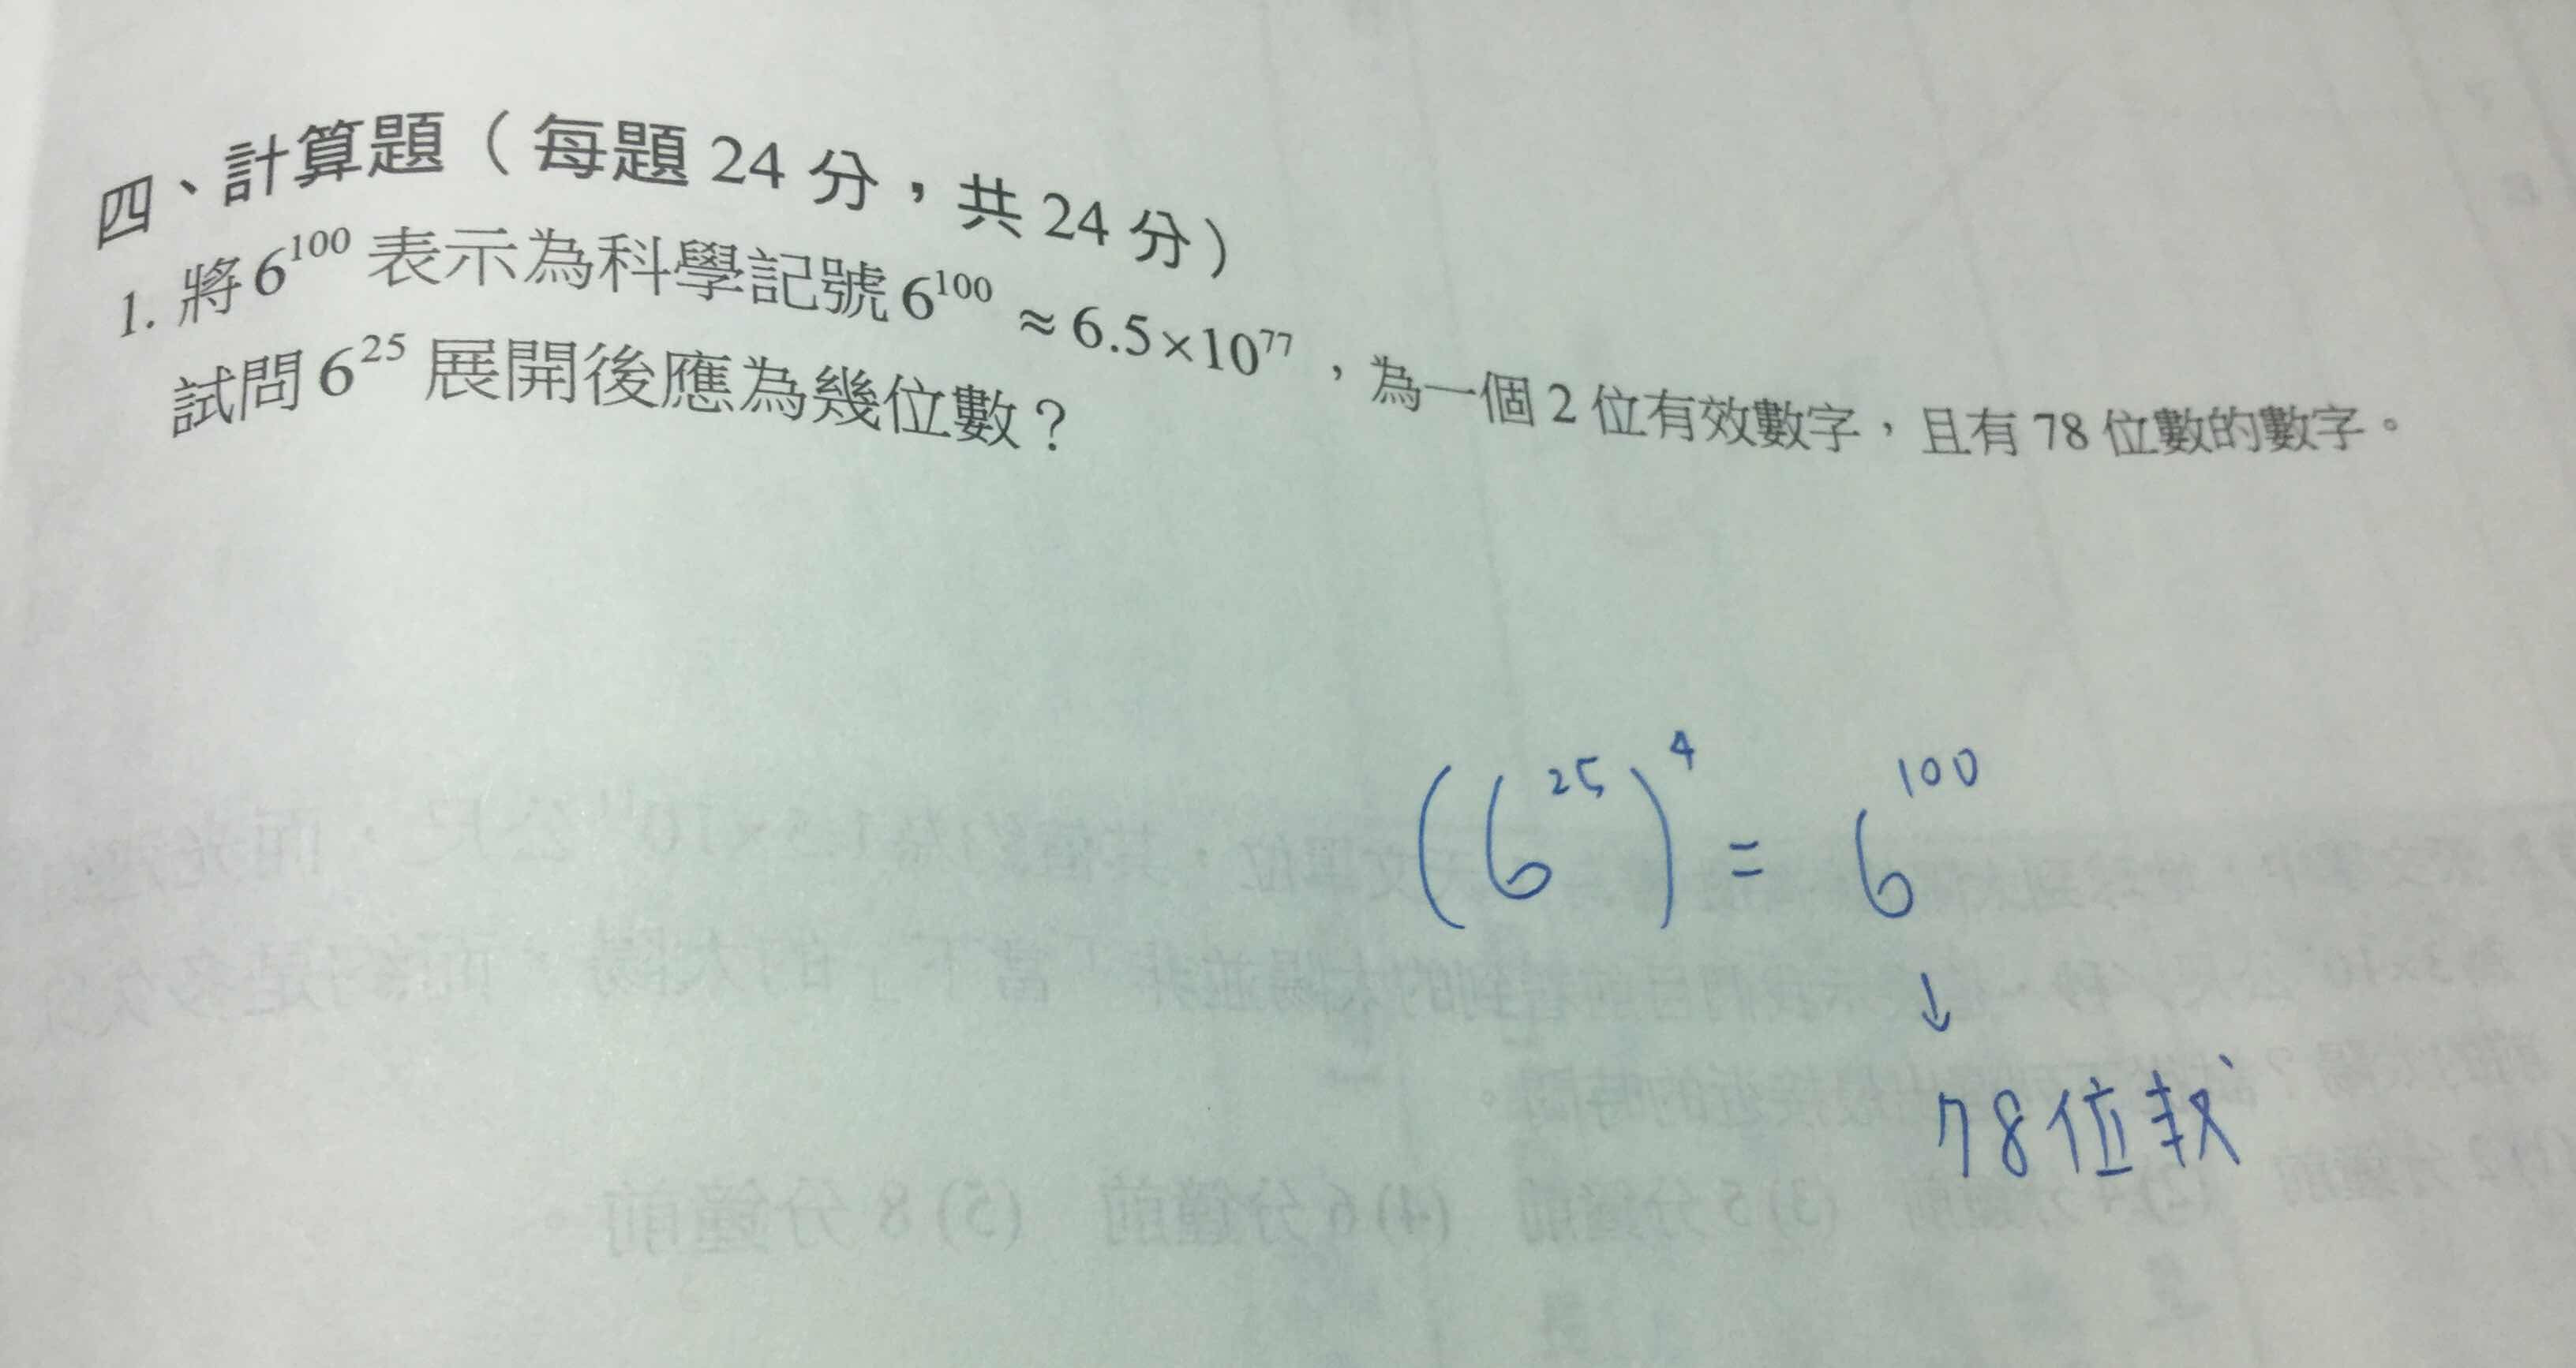 四、計算題（每題 24 分，共 24 分）
1. 將 6^100 表示為科學記號 6^100 ≈ 6.5×10^77，為一個 2 位有效數字，且有 78 位數的數字。
試問 6^25 展開後應為幾位數？
(6^25)^4 = 6^100
↓
78位数